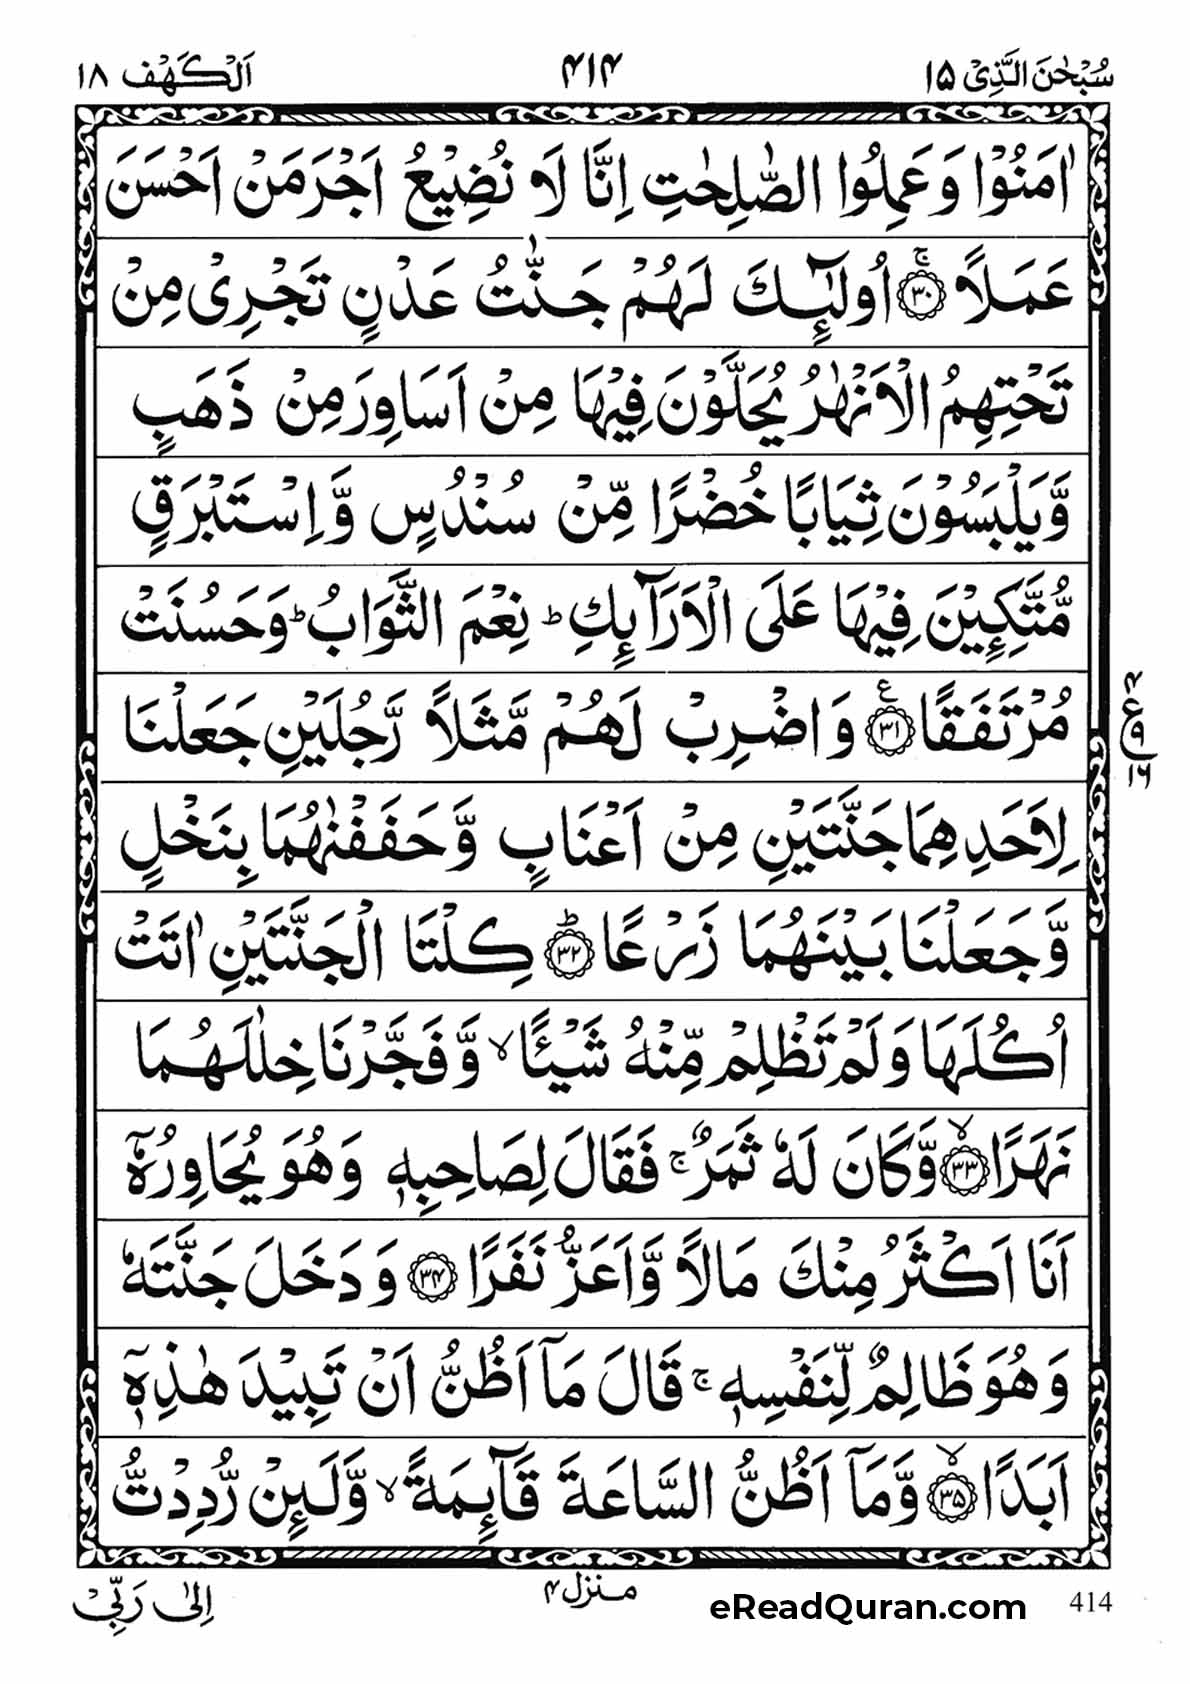 سُبْحٰنَ الَّذِیْ ۱۵
۴۱۴
اَلْكَهْف ۱۸
اٰمَنُوْا وَعَمِلُوا الصّٰلِحٰتِ اِنَّا لَا نُضِیْعُ اَجْرَ مَنْ اَحْسَنَ
عَمَلًاۚ‏ ﴿۳۰﴾ اُولٰٓئِكَ لَهُمْ جَنّٰتُ عَدْنٍ تَجْرِیْ مِنْ
تَحْتِهِمُ الْاَنْهٰرُ یُحَلَّوْنَ فِیْهَا مِنْ اَسَاوِرَ مِنْ ذَهَبٍ
وَّیَلْبَسُوْنَ ثِیَابًا خُضْرًا مِّنْ سُنْدُسٍ وَّاِسْتَبْرَقٍ
مُّتَّكِـِٕیْنَ فِیْهَا عَلَی الْاَرَآىِٕكِؕ نِعْمَ الثَّوَابُؕ وَحَسُنَتْ
مُرْتَفَقًا ﴿۳۱﴾ۧ وَاضْرِبْ لَهُمْ مَّثَلًا رَّجُلَیْنِ جَعَلْنَا
لِاَحَدِهِمَا جَنَّتَیْنِ مِنْ اَعْنَابٍ وَّحَفَفْنٰهُمَا بِنَخْلٍ
وَّجَعَلْنَا بَیْنَهُمَا زَرْعًاؕ ﴿۳۲﴾ كِلْتَا الْجَنَّتَیْنِ اٰتَتْ
اُكُلَهَا وَلَمْ تَظْلِمْ مِّنْهُ شَیْـًٔاۙ وَّفَجَّرْنَا خِلٰلَهُمَا
نَهَرًاۙ ﴿۳۳﴾ وَّكَانَ لَهٗ ثَمَرٌۚ فَقَالَ لِصَاحِبِهٖ وَهُوَ یُحَاوِرُهٗۤ
اَنَا اَكْثَرُ مِنْكَ مَالًا وَّاَعَزُّ نَفَرًا ﴿۳۴﴾ وَدَخَلَ جَنَّتَهٗ
وَهُوَ ظَالِمٌ لِّنَفْسِهٖۚ قَالَ مَاۤ اَظُنُّ اَنْ تَبِیْدَ هٰذِهٖۤ
اَبَدًاۙ ﴿۳۵﴾ وَّمَاۤ اَظُنُّ السَّاعَةَ قَآىِٕمَةًۙ وَّلَىِٕنْ رُّدِدْتُّ
ع
۴
۹
۱۶
اِلٰی رَبِّیْ
منزل ۴
eReadQuran.com
414